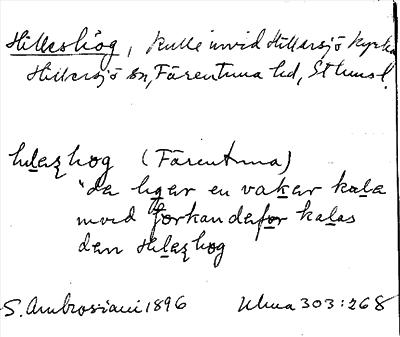 Hilleshög, kulle invid Hillersjö kyrka
Hillersjö sn, Färentuna hd, Sthms l.
hılaʒhog (Färentuna)
"da lıgar en vakar kala
invıd
den Hılaʒhog
S. Ambrosiani 1896 Ulma 303:268